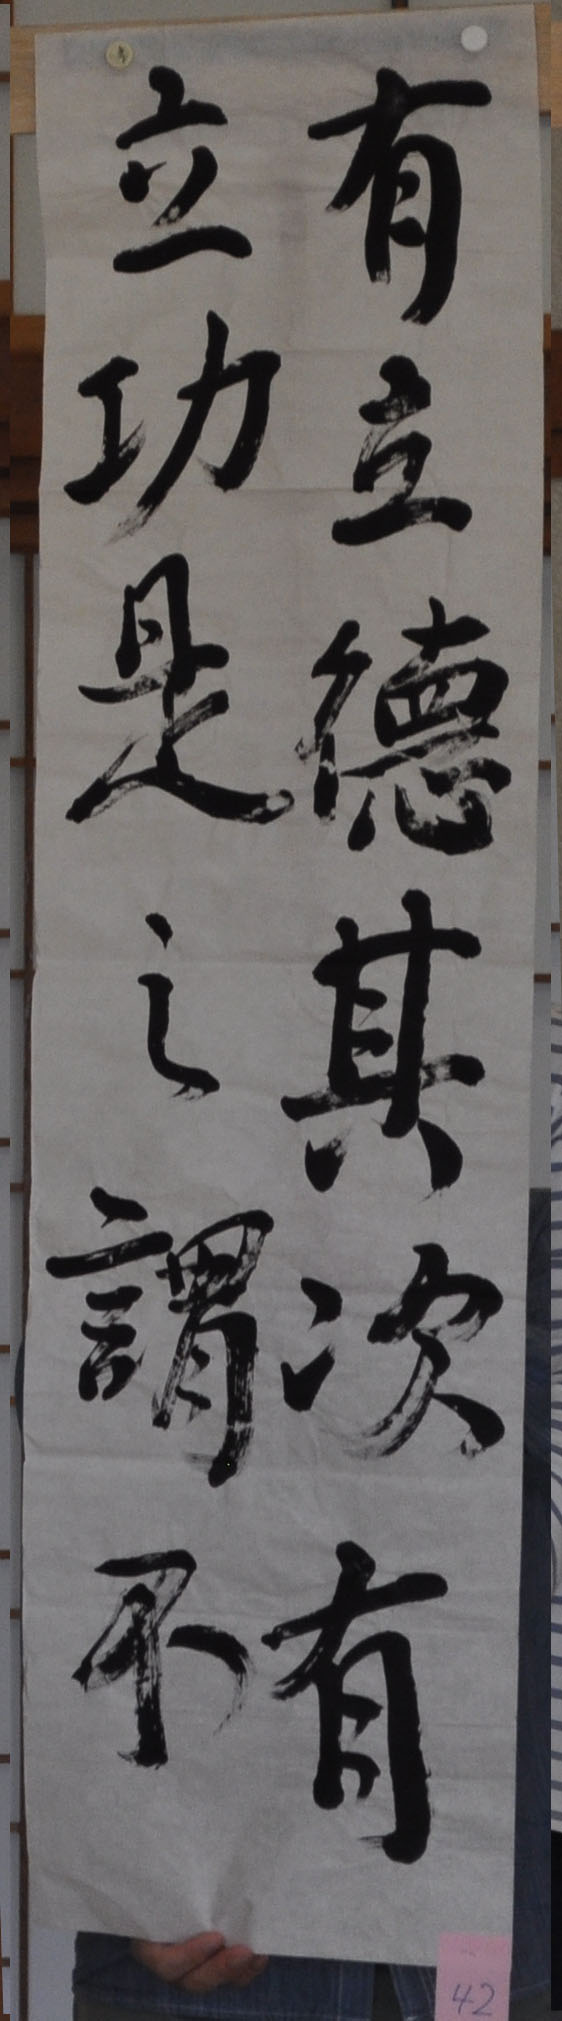 有立德其次有
立功是之謂不
42